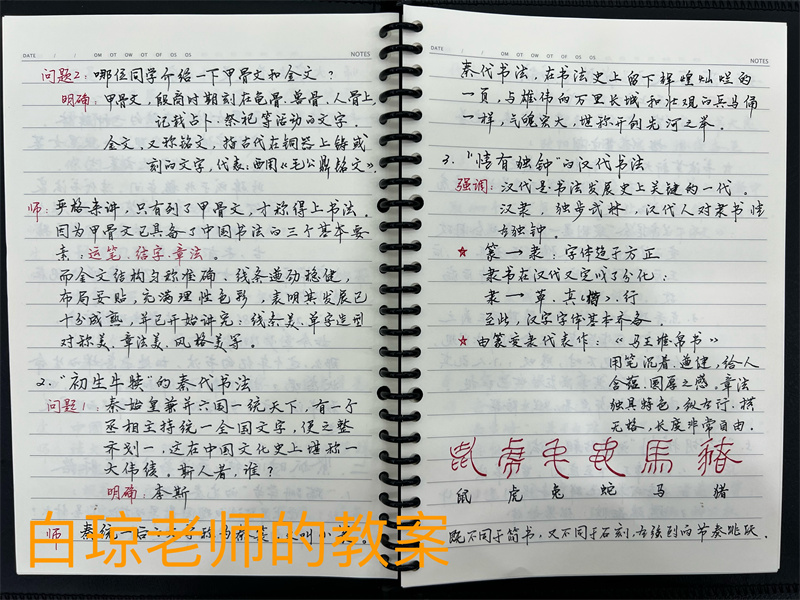 DATE / / OM OT OF OS OS NOTES
问题2：哪位同学介绍一下甲骨文和金文？
明确：甲骨文，殷商时期刻在龟骨、兽骨、人骨上，
记载占卜、祭祀等活动的文字
金文，又称铭文，指古代在铜器上铸或
刻的文字，代表：西周《毛公鼎铭文》。
师：严格来讲，只有到了甲骨文，才称得上书法。
因为甲骨文已具备了中国书法的三个基本要
素：运笔、结字、章法。
而金文结构匀称准确，线条遒劲稳健，
布局妥贴，充满理性色彩，表明其发展已
十分成熟，并已开始讲究：线条美、单字造型
对称美、章法美、风格美等。
2、"初生牛犊"的秦代书法
问题1：秦始皇兼并六国一统天下，有一个
丞相主持统一全国文字，使之整
齐划一，这在中国文化史上堪称一
大伟绩，斯人者，谁？
明确：李斯
师：秦统一后
白琼老师的教案
DATE / / OM OT OF OS OS NOTES
秦代书法，在书法史上留下辉煌灿烂的
一页，与雄伟的万里长城和壮观的兵马俑
一样，气魄宏大，堪称开创先河之举。
3、"情有独钟"的汉代书法
强调：汉代是书法发展史上关键的一代。
汉隶，独步武林，汉代人对隶书情
有独钟。
★ 篆→隶：字体趋于方正
隶书在汉代又完成了分化：
隶→草、真(楷)、行
至此，汉字字体基本齐备。
★ 由篆变隶代表作：《马王堆帛书》
用笔沉着、遒健，给人
含蕴、圆厚之感。章法
独具特色，纵有行、横
无格，长度非常自由。
鼠 虎 兔 蛇 馬 豬
鼠 虎 兔 蛇 马 猪
既不同于简书，又不同于石刻，有强烈的节奏跳跃。